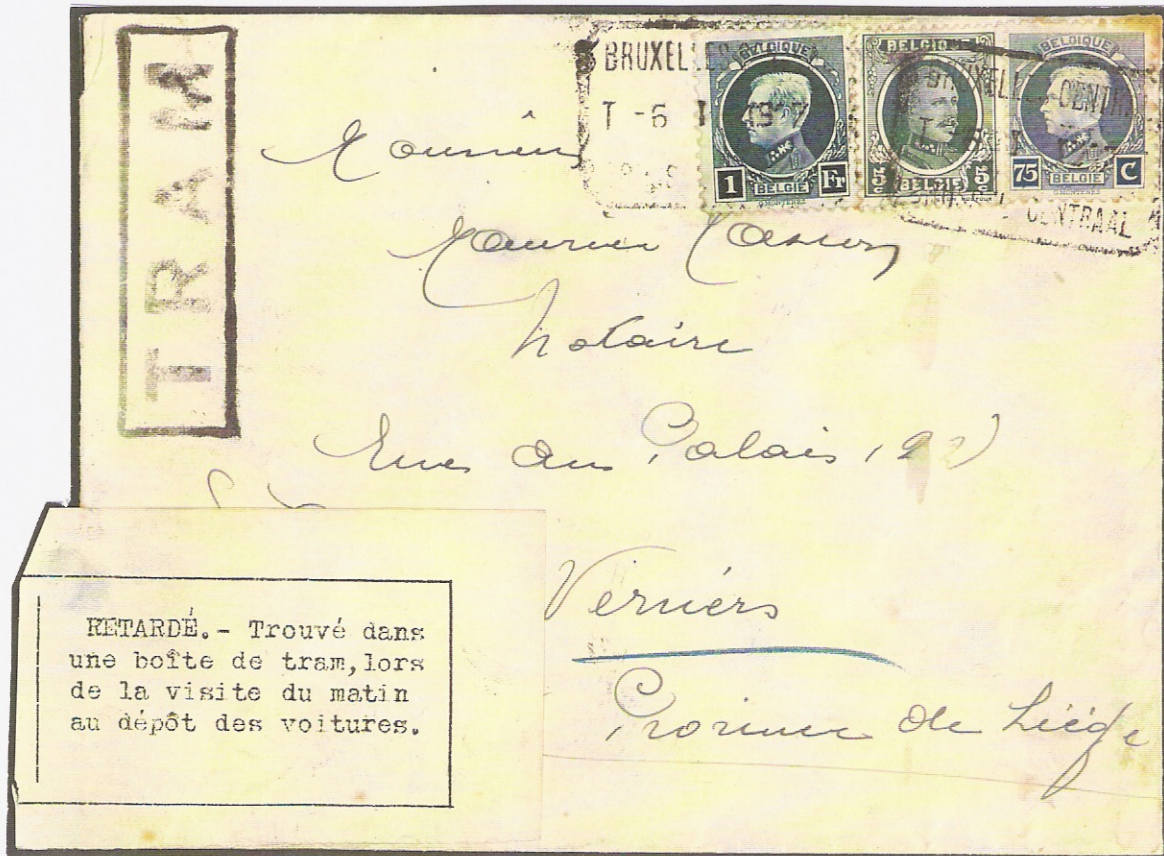 TRAM
BRUXELLES
T -6 I
BELGIQUE
1 BELGIE Fr
BELGIQUE
5c BELGIË 5c
BELGIQUE
75 BELGIE C
BRUXELLES-CENTR
CENTRAAL
Monsieur
Maurice
Notaire
Rue du Palais
Verviers
Province de Liége
RETARDÉ.- Trouvé dans
une boîte de tram, lors
de la visite du matin
au dépôt des voitures.